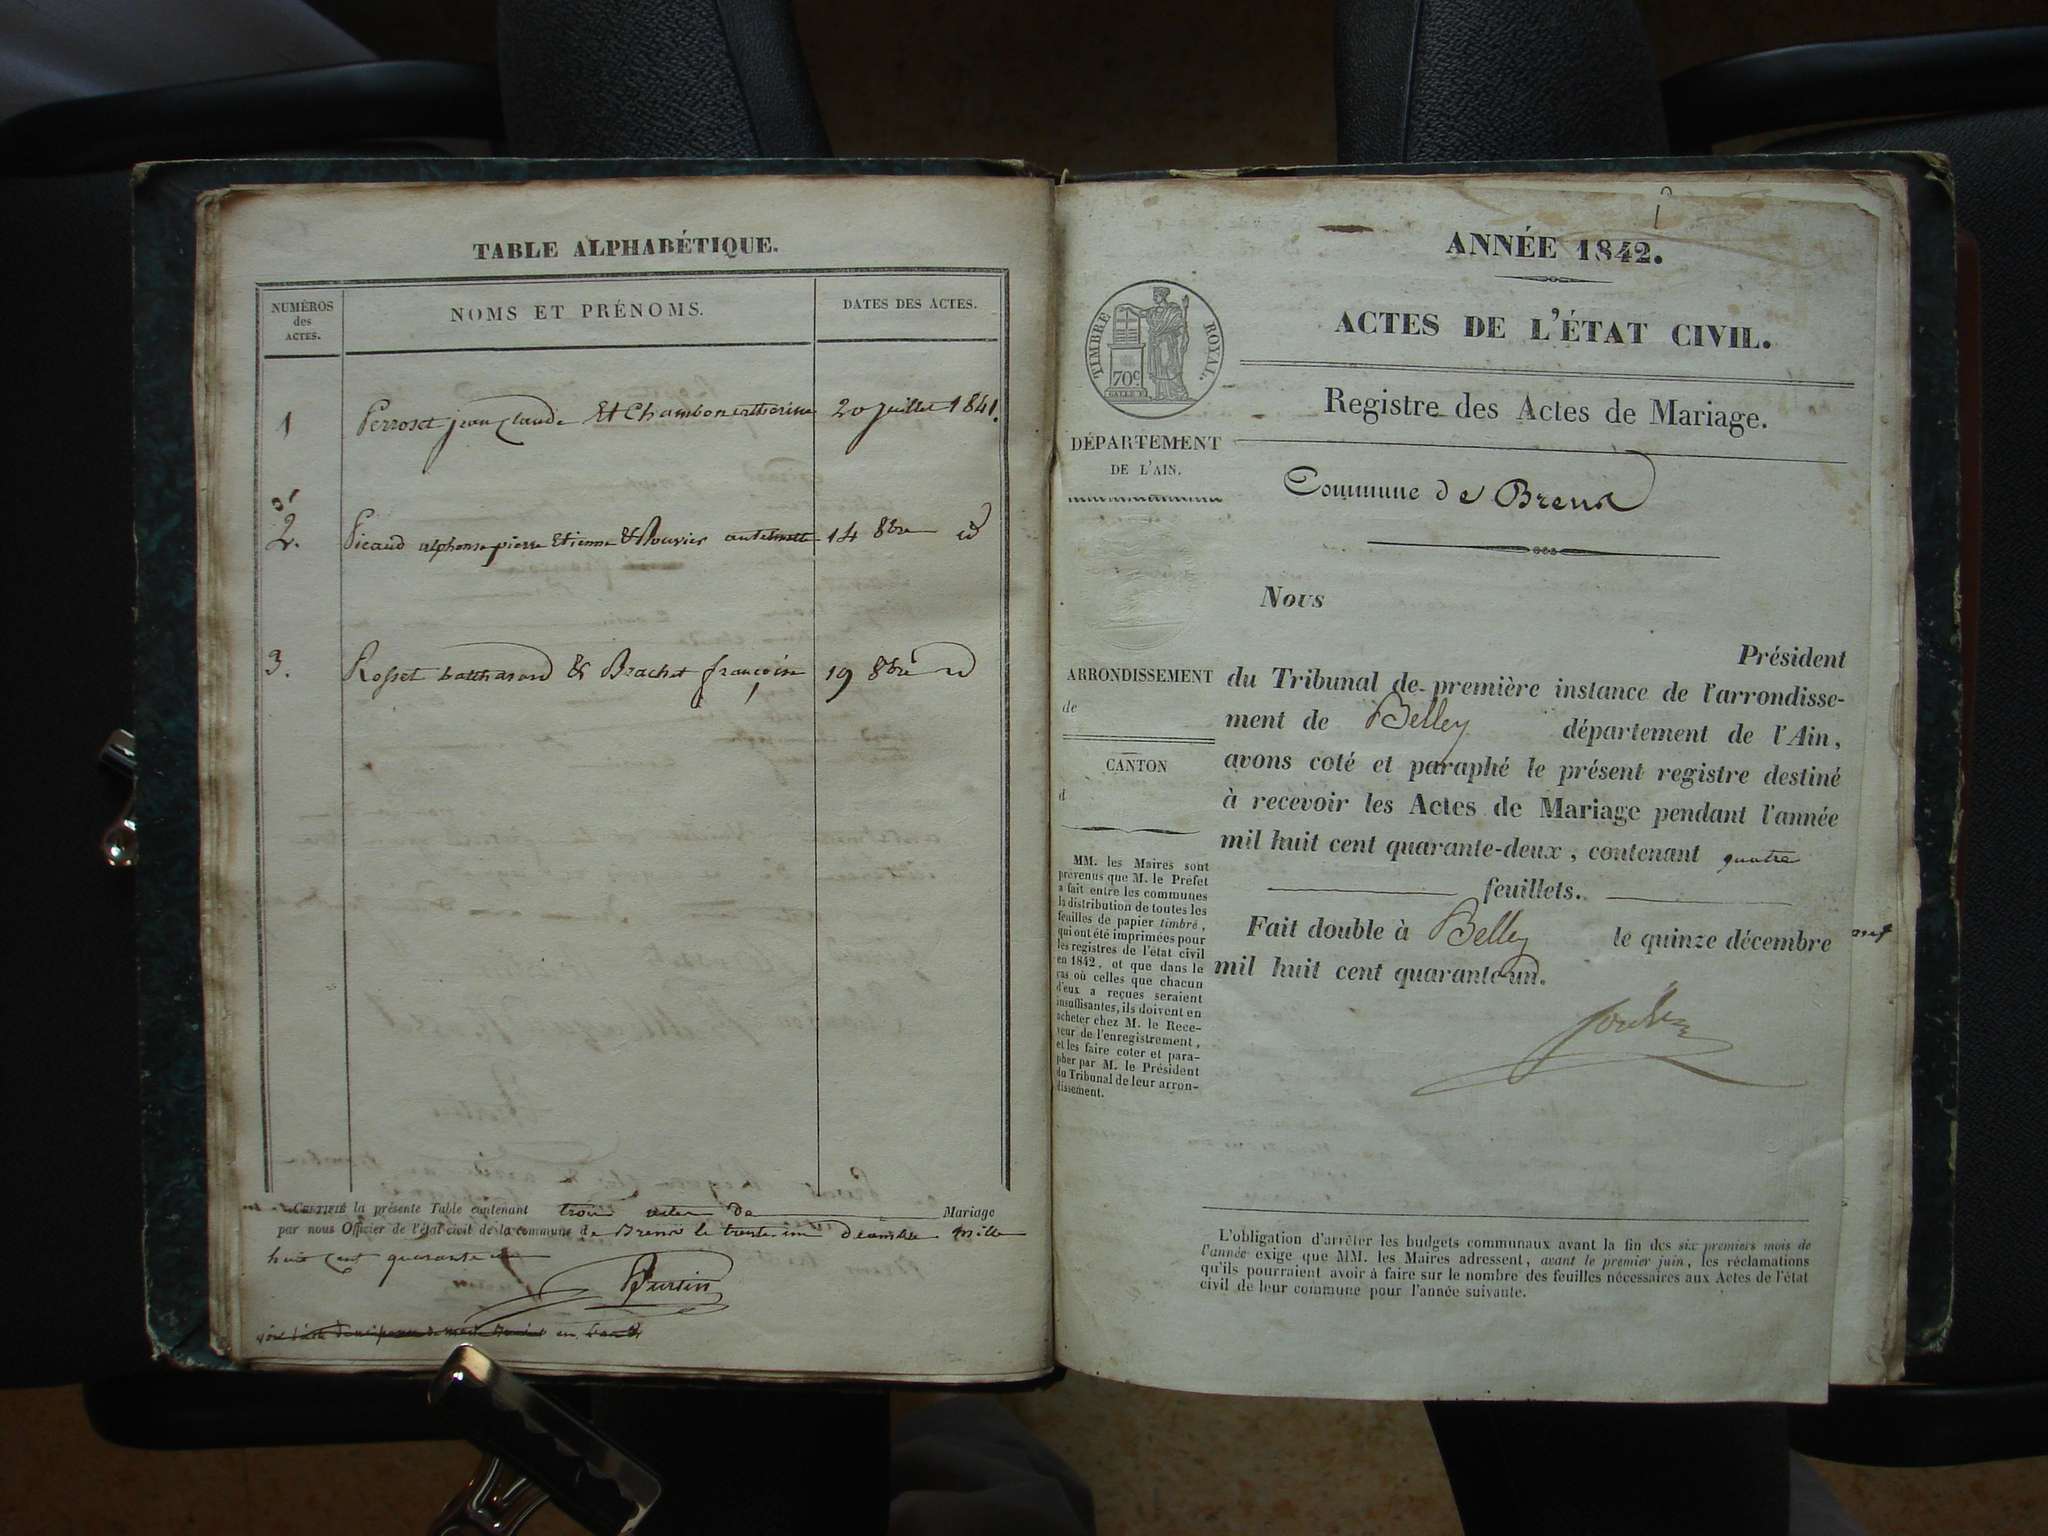 TABLE ALPHABÉTIQUE.
NUMÉROS
des
ACTES.
NOMS ET PRÉNOMS.
DATES DES ACTES.
1 Perroset jean Claude Et Chambon catherine 20 juillet 1841.
2. Picaud alphonse pierre Etienne & Bouvier anthelmette 14 8bre id
3. Rosset balthasard & Brachet françoise 19 8bre id
CERTIFIÉ la présente Table contenant trois actes de Mariage
par nous Officier de l'état civil de la commune de Brens le trente un décembre mille
huit cent quarante un
Burtin
1
ANNÉE 1842.
ACTES DE L'ÉTAT CIVIL.
TIMBRE ROYAL.
70c
Registre des Actes de Mariage.
DÉPARTEMENT
DE L'AIN.
Commune de Brens
Nous
Président
du Tribunal de première instance de l'arrondisse-
ment de Belley département de l'Ain,
avons coté et paraphé le présent registre destiné
à recevoir les Actes de Mariage pendant l'année
mil huit cent quarante-deux, contenant quatre
feuillets.
Fait double à Belley le quinze décembre
mil huit cent quarante-un.
ARRONDISSEMENT
de
CANTON
d
MM. les Maires sont
prévenus que M. le Préfet
a fait entre les communes
la distribution de toutes les
feuilles de papier timbré,
qui ont été imprimées pour
les registres de l'état civil
en 1842, et que dans le
cas où celles que chacun
d'eux a reçues seraient
insuffisantes, ils doivent en
acheter chez M. le Rece-
veur de l'enregistrement,
et les faire coter et para-
pher par M. le Président
du Tribunal de leur arron-
dissement.
L'obligation d'arrêter les budgets communaux avant la fin des six premiers mois de
l'année exige que MM. les Maires adressent, avant le premier juin, les réclamations
qu'ils pourraient avoir à faire sur le nombre des feuilles nécessaires aux Actes de l'état
civil de leur commune pour l'année suivante.